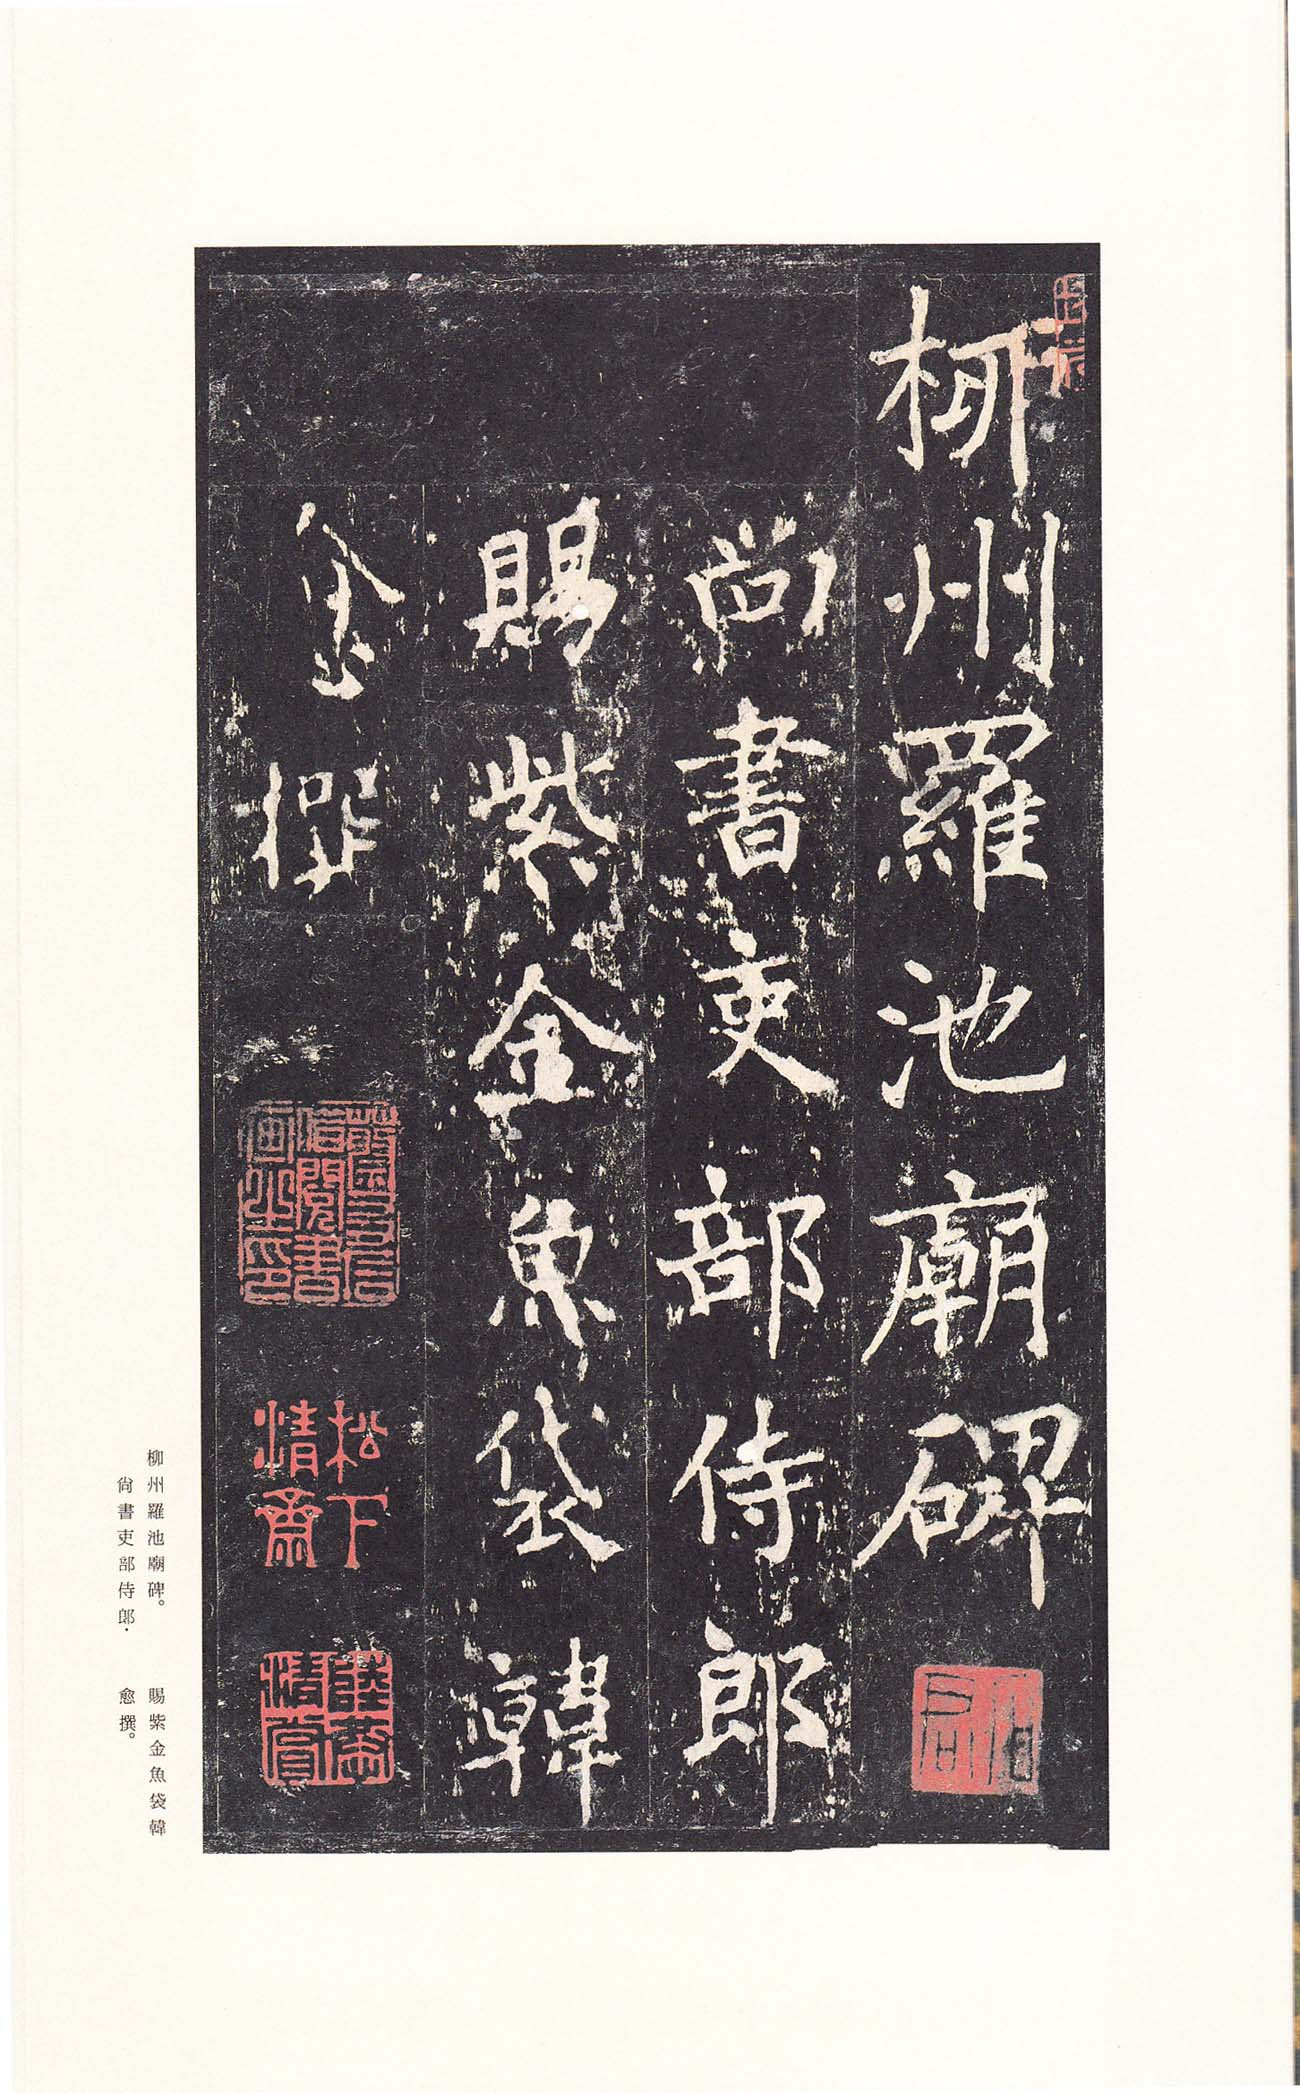 柳州羅池廟碑
尚書吏部侍郎
賜紫金魚袋韓
愈撰
松下
清齋
柳州羅池廟碑。
尚書吏部侍郎·
賜紫金魚袋韓
愈撰。